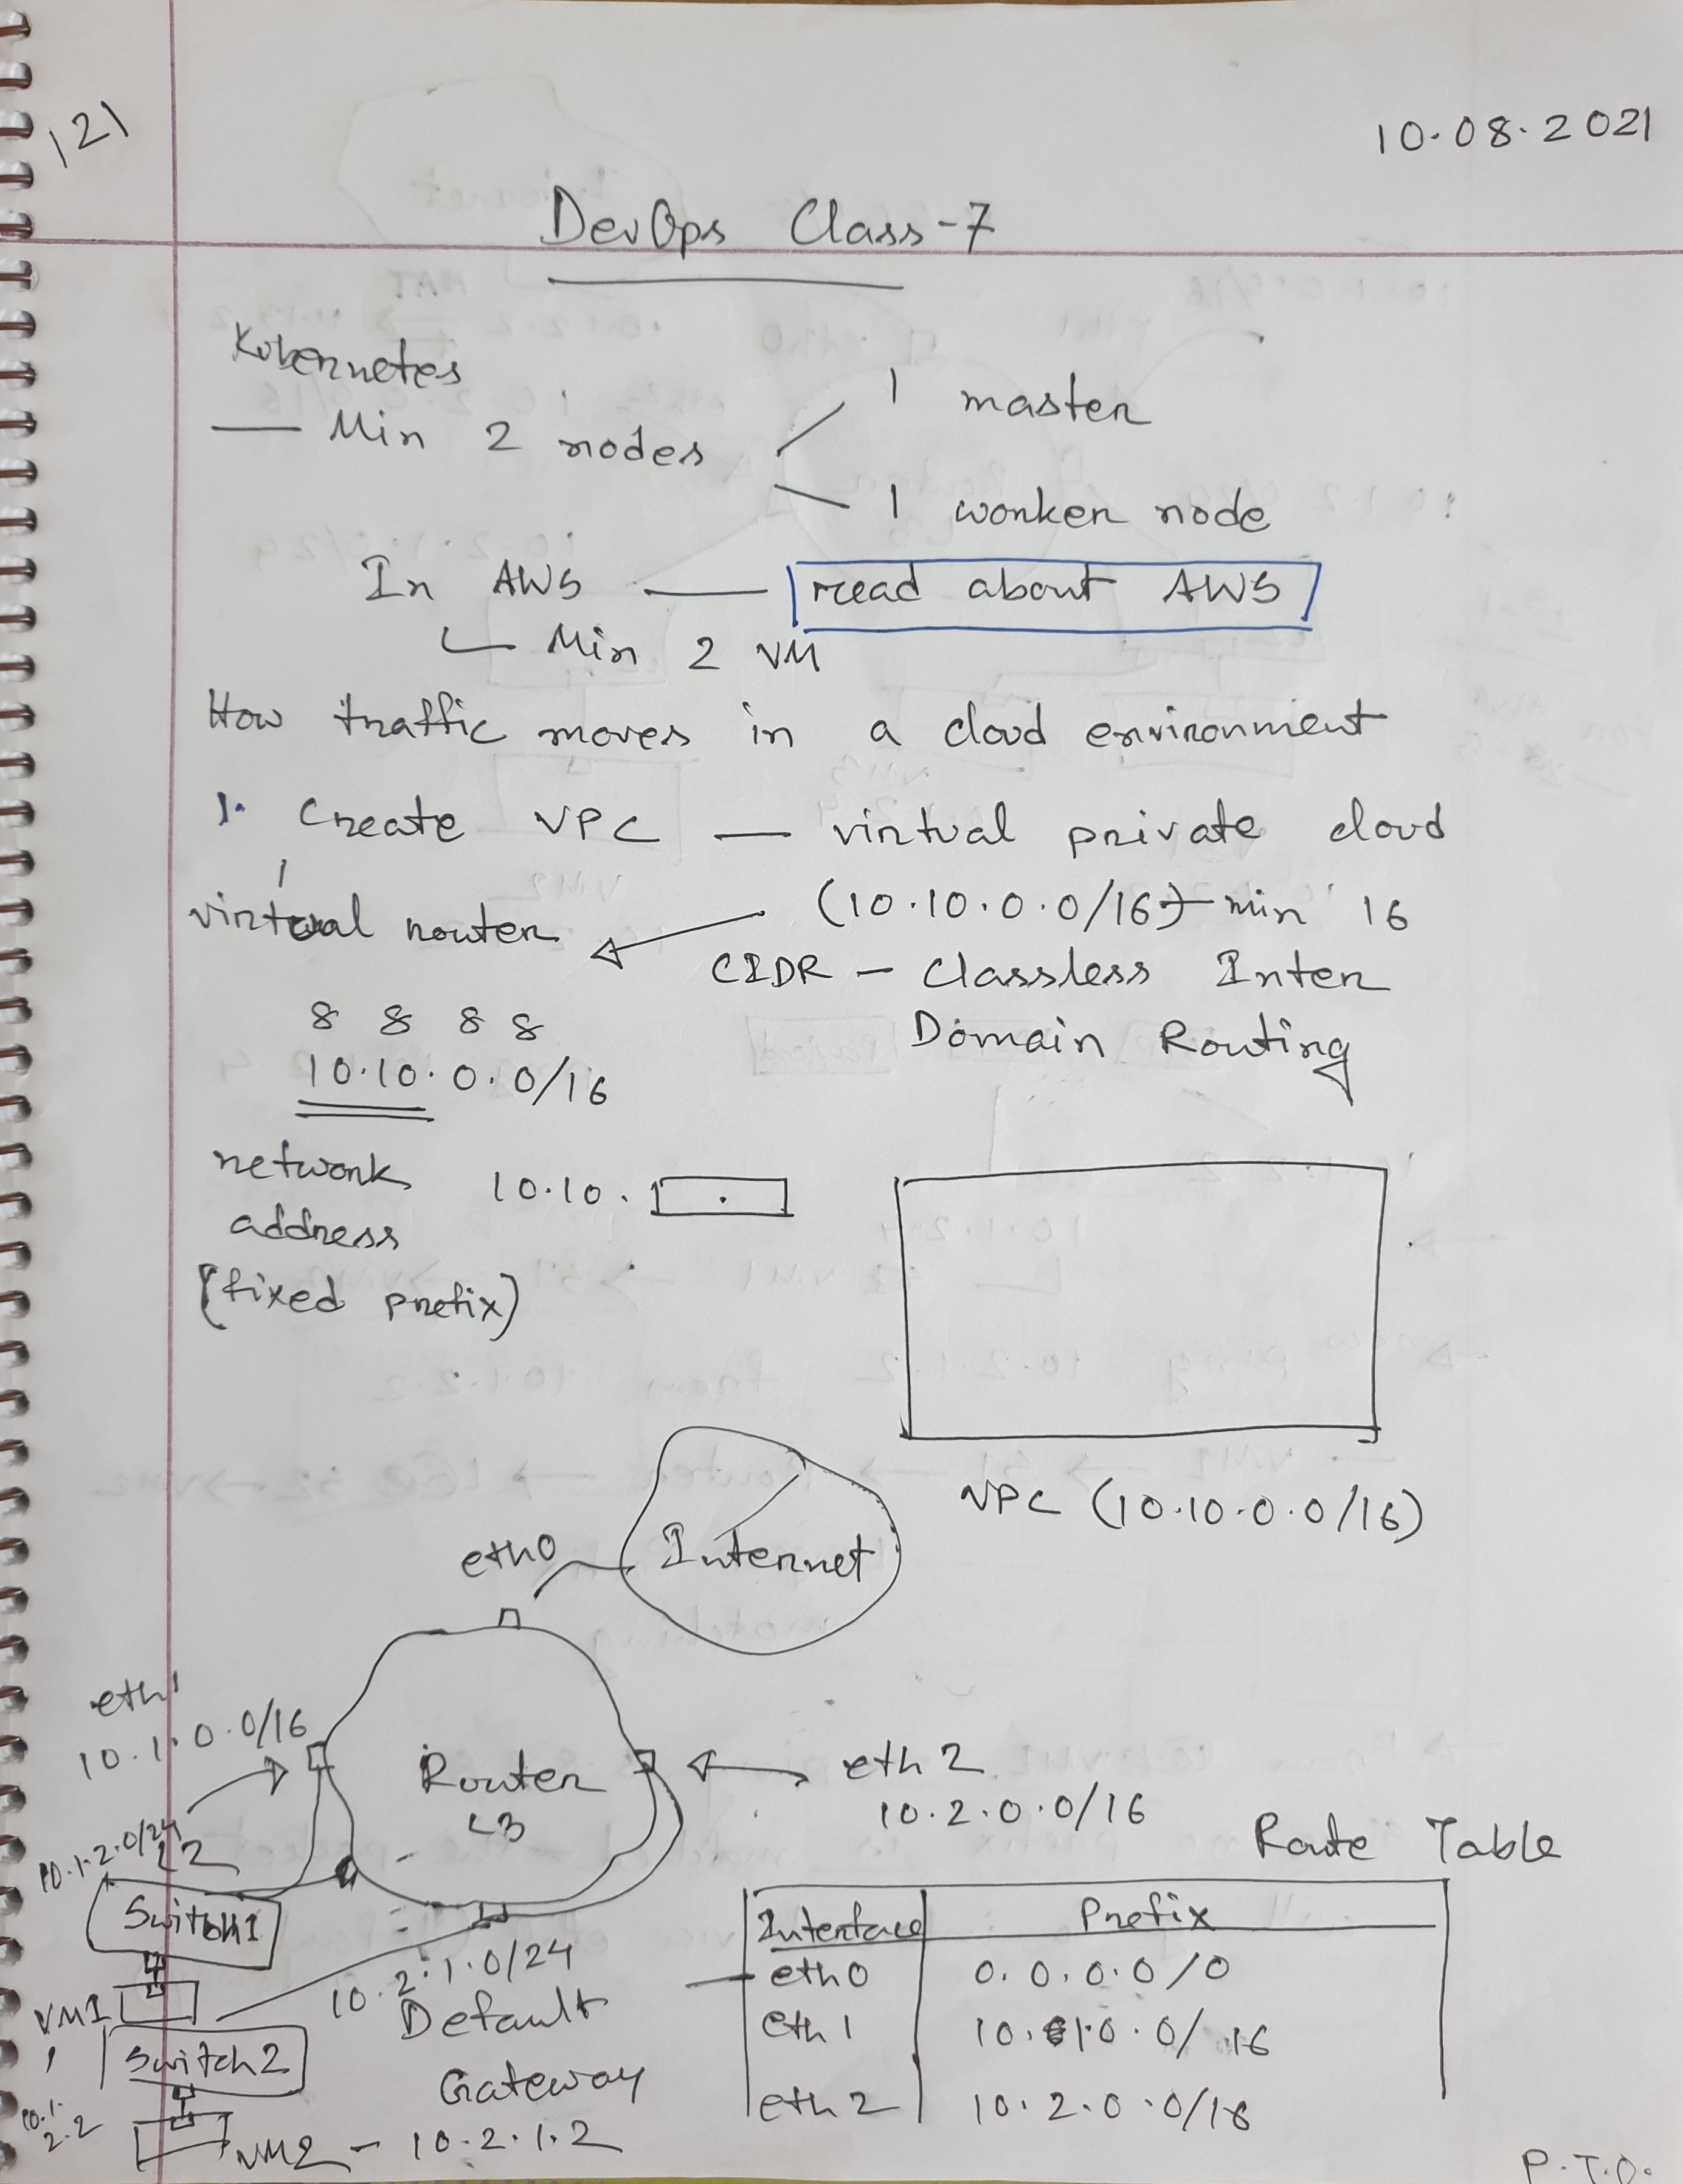 121
10.08.2021
DevOps Class-7
Kubernetes
— Min 2 nodes
1 master
1 worker node
In AWS — read about AWS
Min 2 VM
How traffic moves in a cloud environment
1. Create VPC — virtual private cloud
virtual router
(10.10.0.0/16) min 16
CIDR - Classless Inter
Domain Routing
8 8 8 8
10.10.0.0/16
network
address
(fixed prefix)
10.10. .
VPC (10.10.0.0/16)
Internet
eth0
eth1
10.1.0.0/16
Router
L3
eth2
10.2.0.0/16
10.1.2.0/24
L2
Switch1
VM1
10.1.
2.2
Switch2
VM2 - 10.2.1.2
10.2.1.0/24
Default
Gateway
Route Table
Interface Prefix
eth0 0.0.0.0/0
eth1 10.1.0.0/16
eth2 10.2.0.0/16
P.T.O.